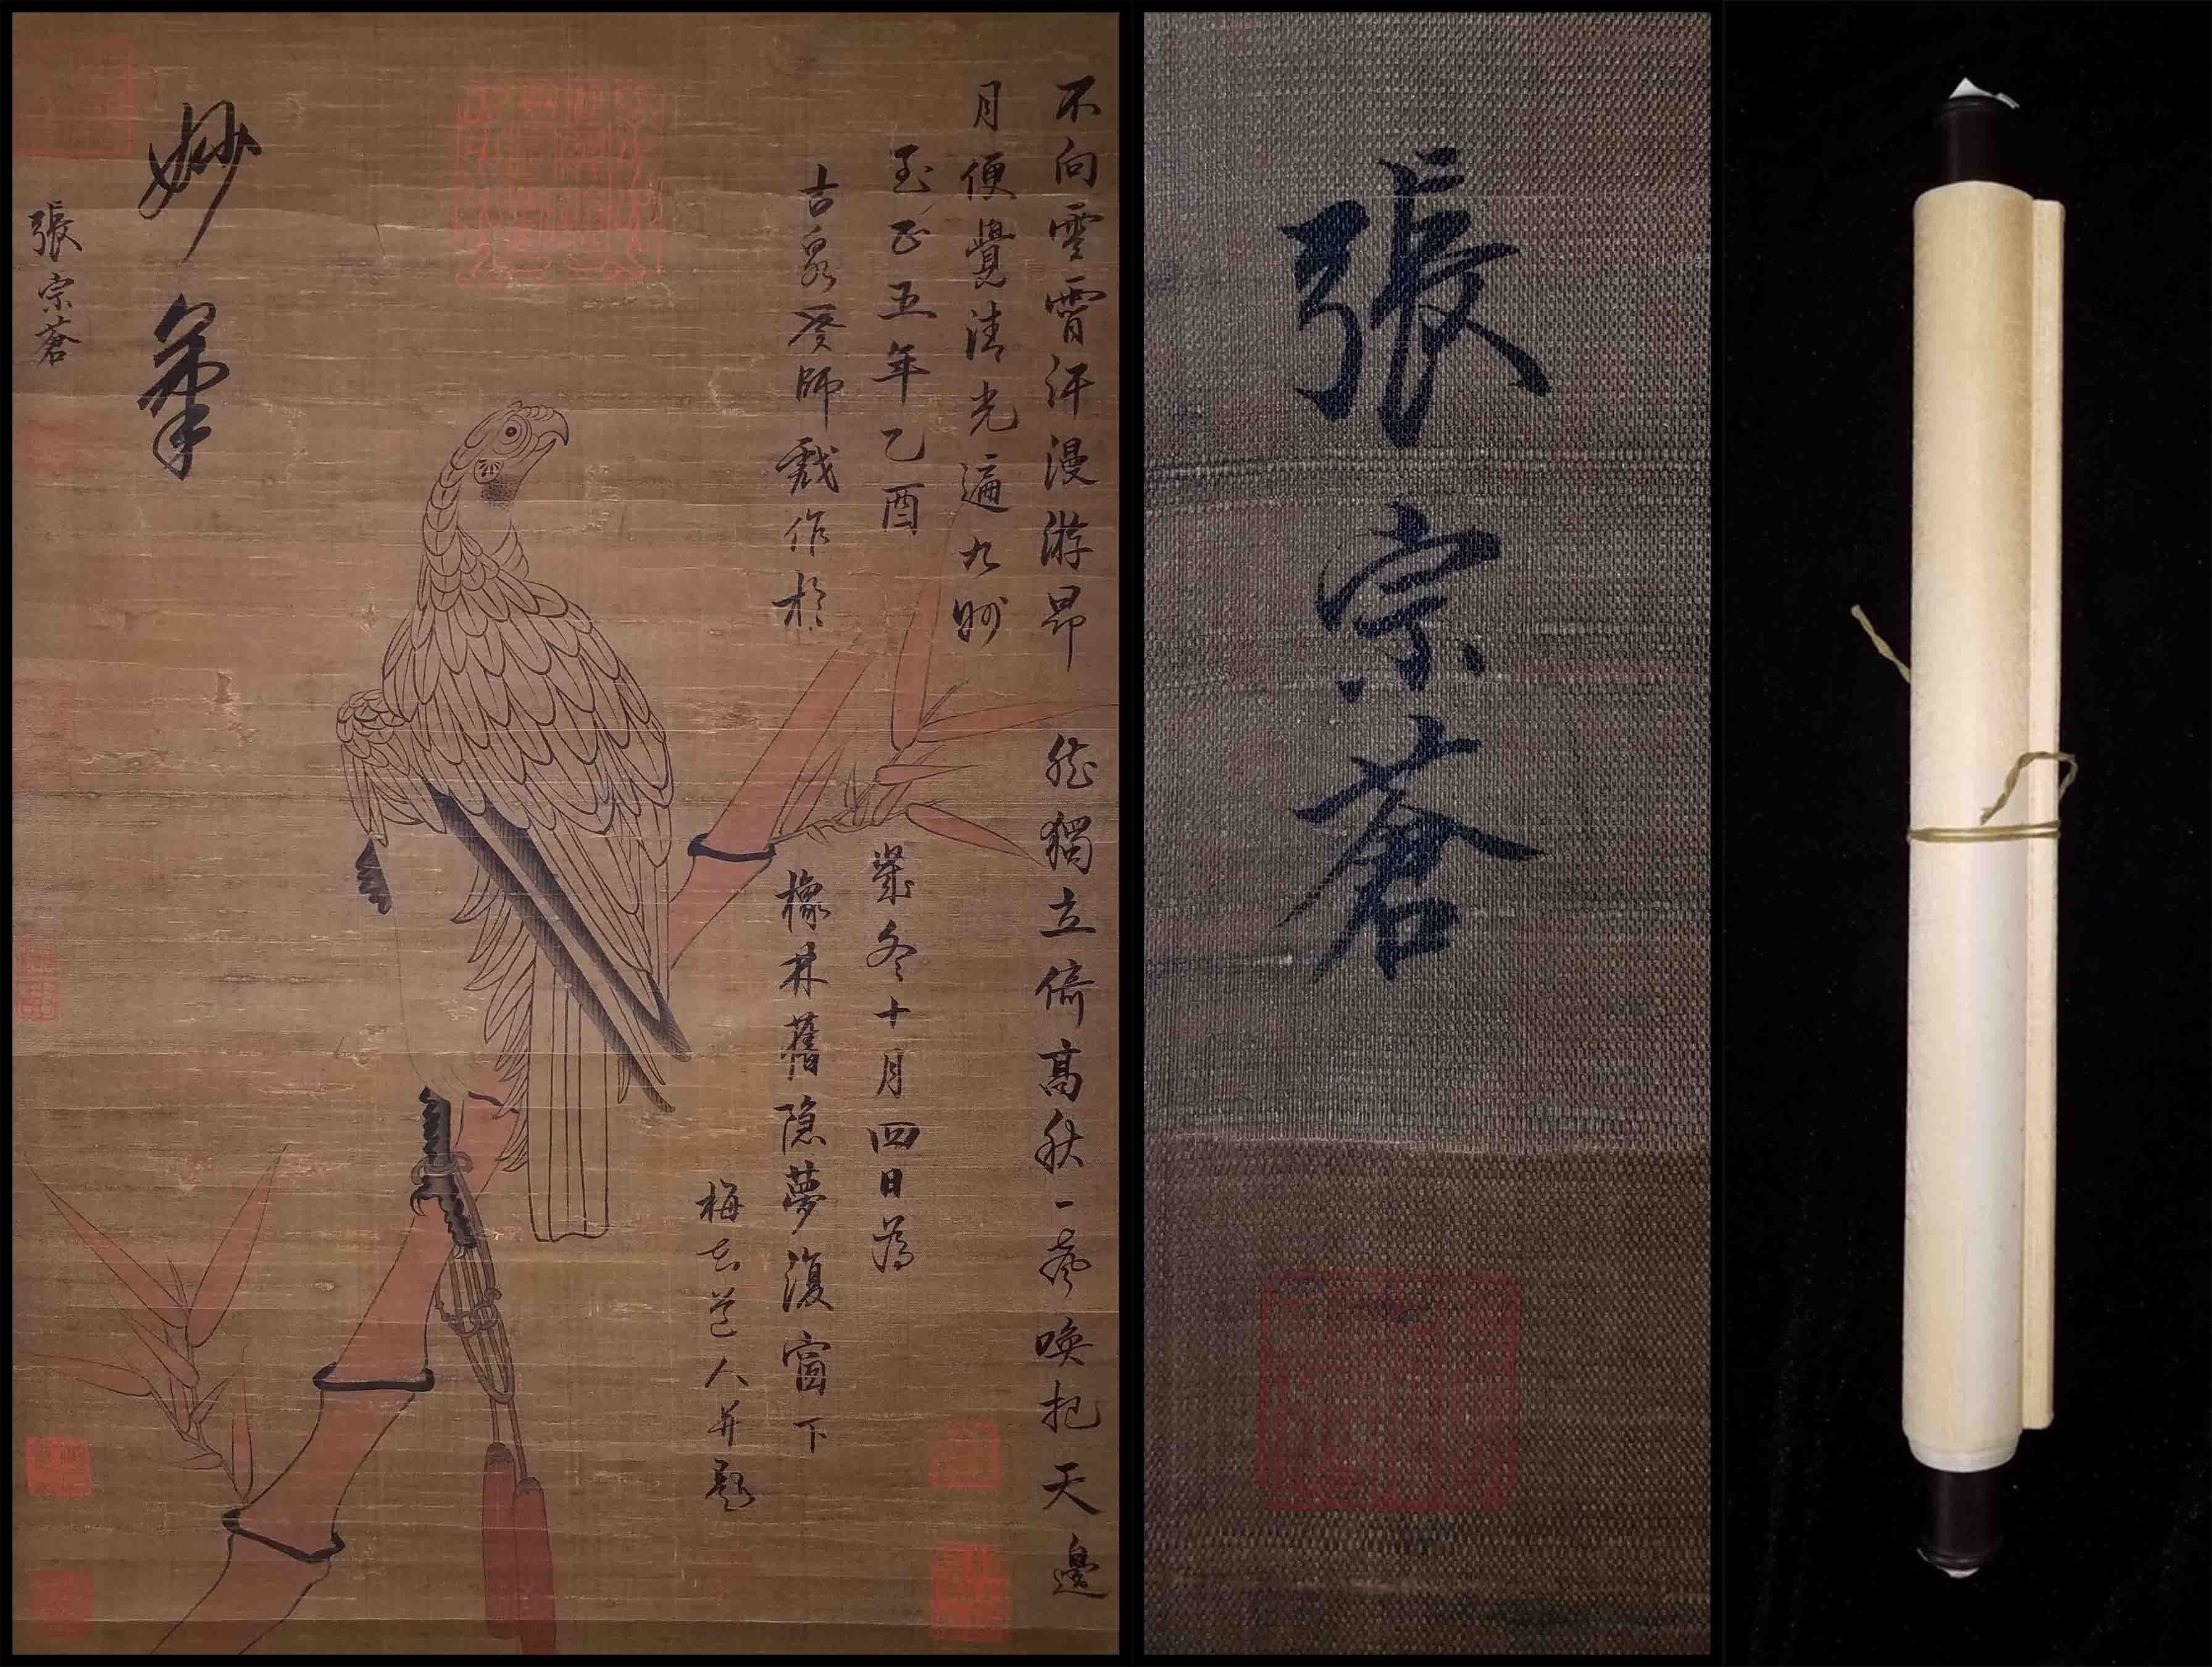 不向雲霄汗漫游昂然獨立倚高秋一聲喚把天邊
月便覺清光遍九州
至正五年乙酉歲冬十月四日為
古泉老師戲作於橡林舊隱夢復窗下
梅花道人并題
妙筆
張宗蒼
張宗蒼